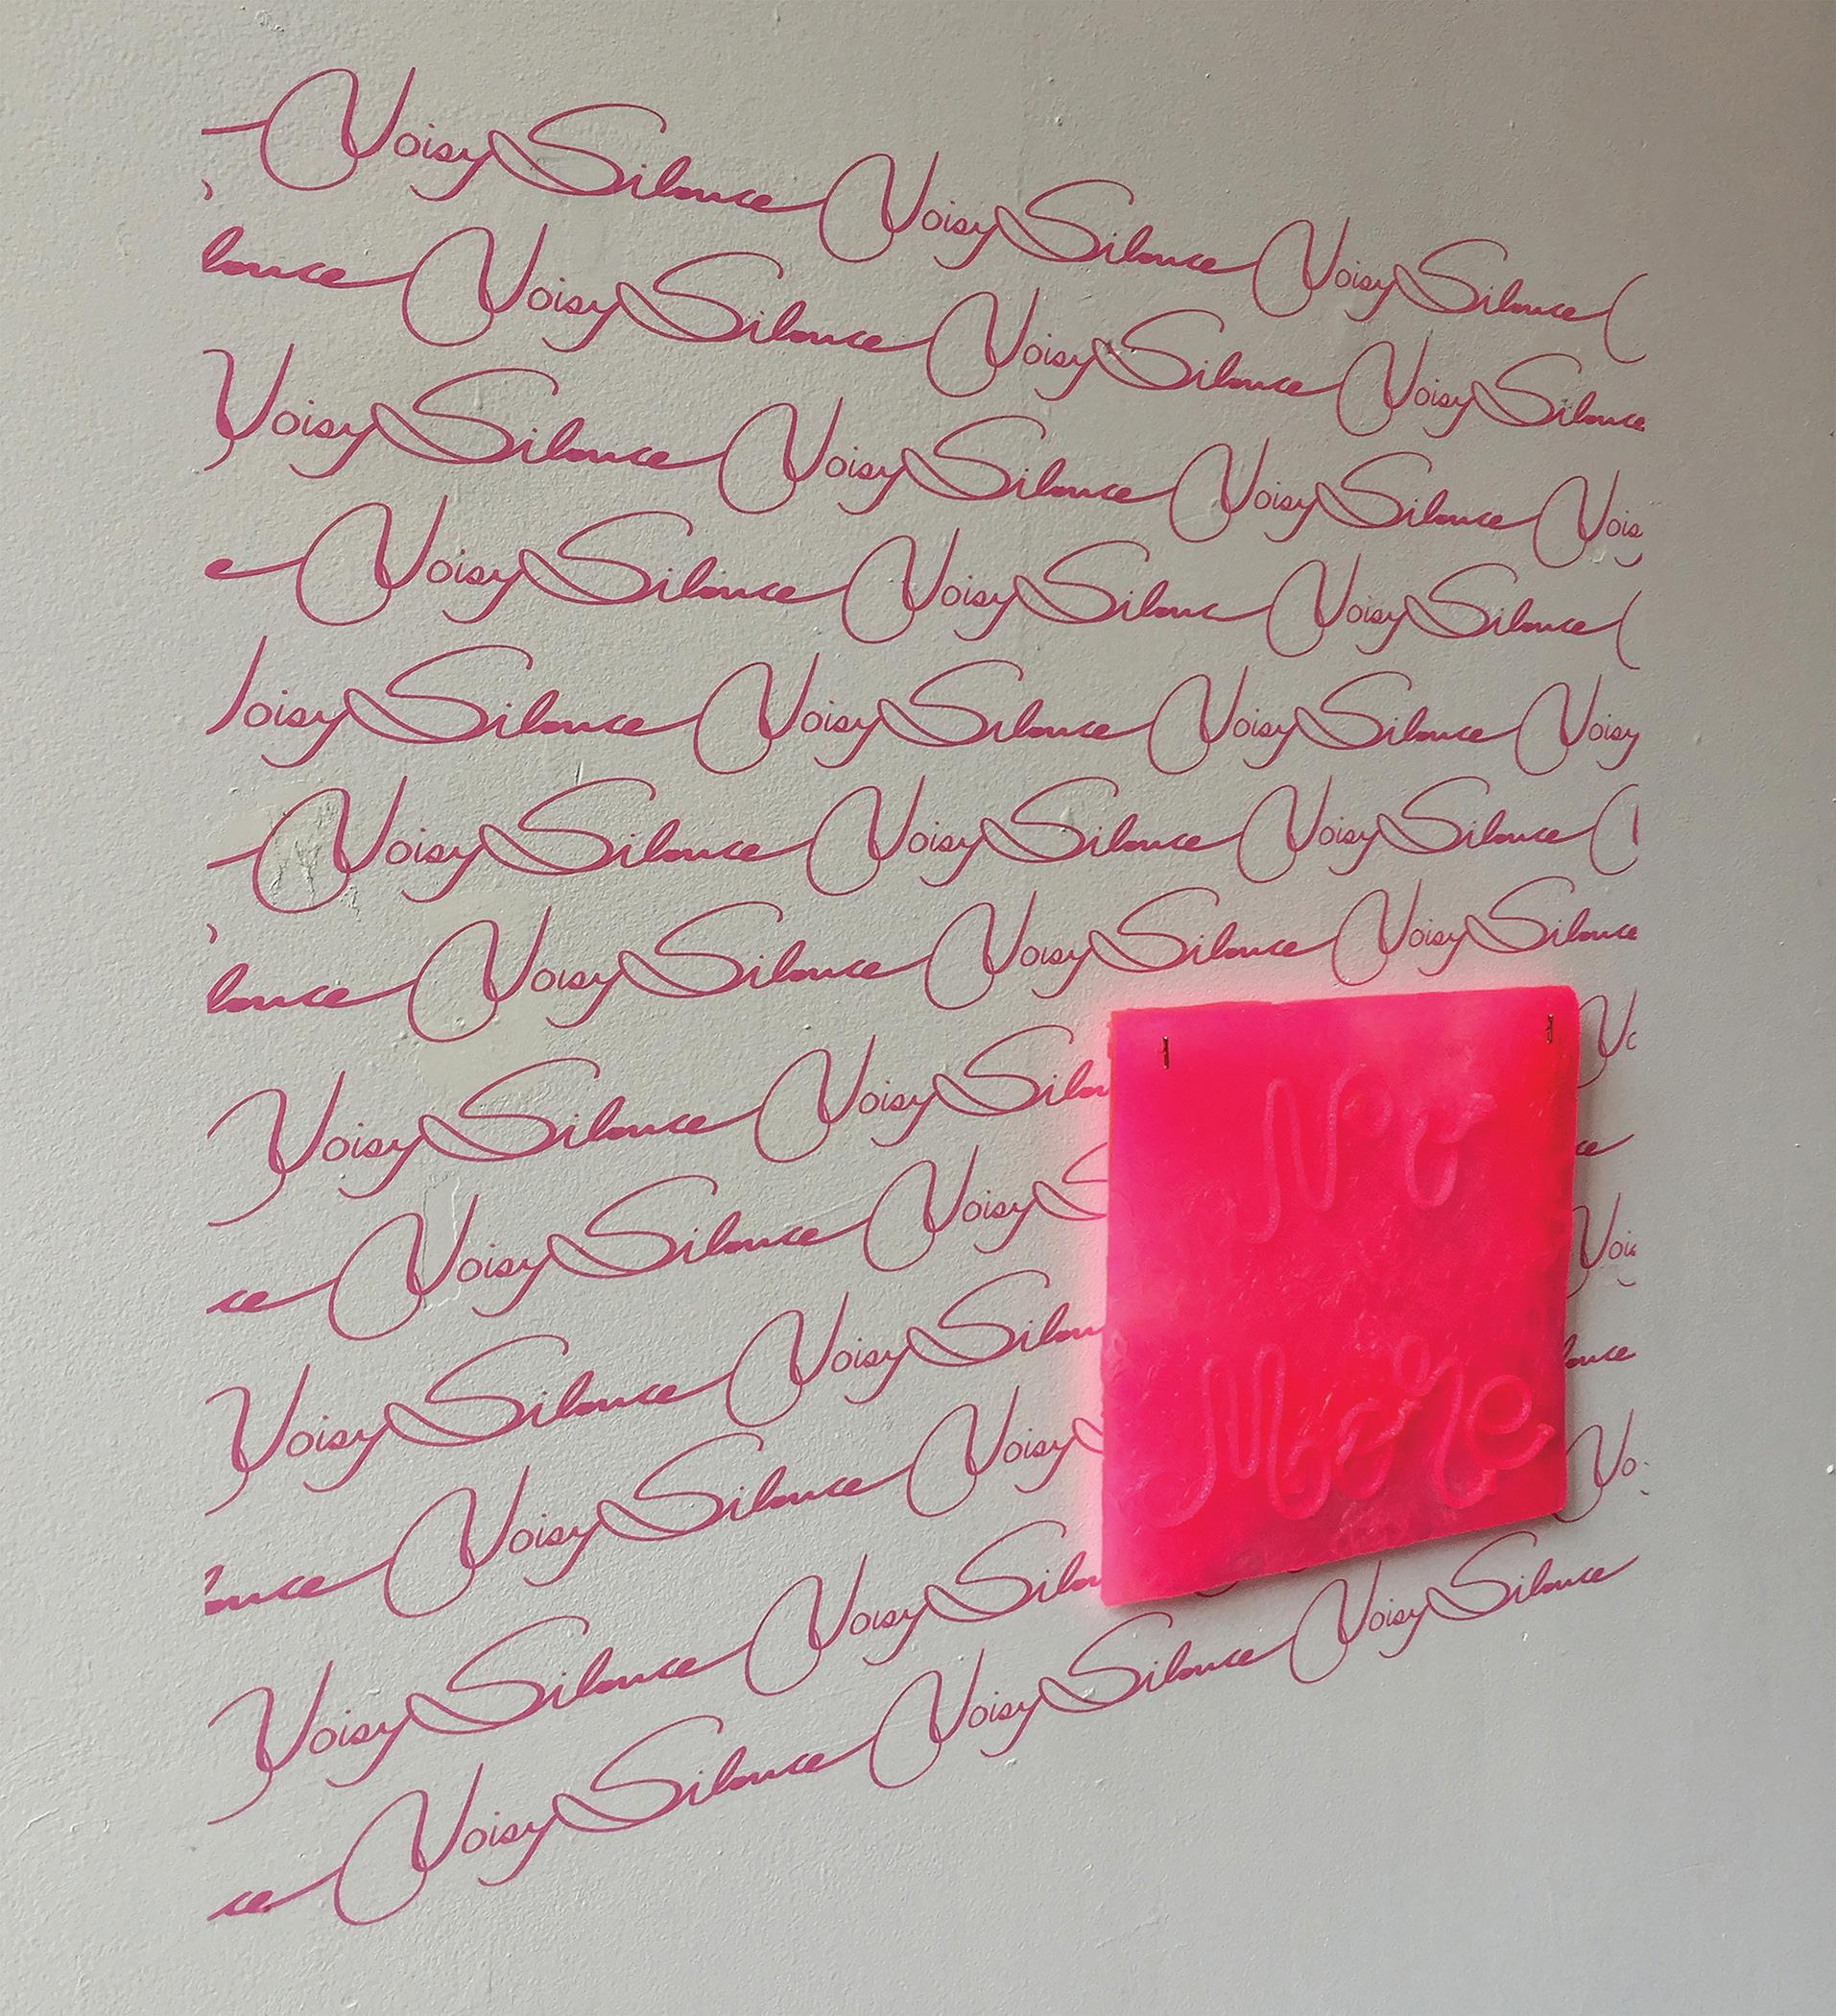 Noisy Silence Noisy Silence Noisy Silence
lence Noisy Silence Noisy Silence Noisy Silence
Noisy Silence Noisy Silence Noisy Silence Nois
e Noisy Silence Noisy Silenc Noisy Silence
oisy Silence Noisy Silence Noisy Silence Noisy
Noisy Silence Noisy Silence Noisy Silence
lence Noisy Silence Noisy Silence Noisy Silence
Noisy Silence Noisy Silen No
ce Noisy Silence Noisy S ce
Noisy Silence Noisy Silen Nois
lence Noisy Silence Noisy lence
Noisy Silence Noisy Silen No
ce Noisy Silence Noisy Silence Noisy Silence
No
More